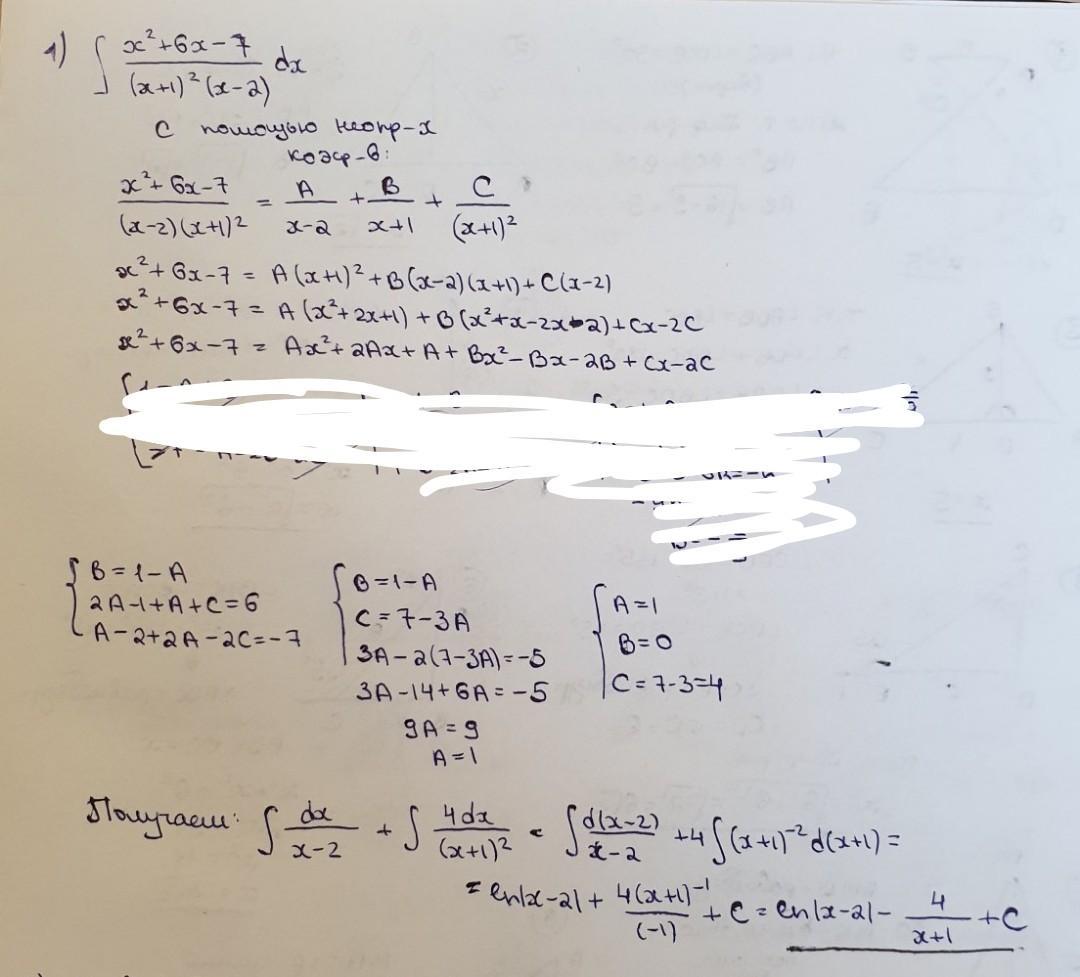 1) ∫ (x²+6x-7)/((x+1)²(x-2)) dx
С помощью неопр-х
коэф-в:
(x²+6x-7)/((x-2)(x+1)²) = A/(x-2) + B/(x+1) + C/(x+1)²
x²+6x-7 = A(x+1)²+B(x-2)(x+1)+C(x-2)
x²+6x-7 = A(x²+2x+1)+B(x²+x-2x-2)+Cx-2C
x²+6x-7 = Ax²+2Ax+A+Bx²-Bx-2B+Cx-2C
{ B=1-A
2A-1+A+C=6
A-2+2A-2C=-7
{ B=1-A
C=7-3A
3A-2(7-3A)=-5
3A-14+6A=-5
9A=9
A=1
{ A=1
B=0
C=7-3=4
Получаем: ∫ dx/(x-2) + ∫ 4dx/(x+1)² = ∫ d(x-2)/(x-2) +4∫(x+1)⁻²d(x+1)=
= ln|x-2|+ 4(x+1)⁻¹/(-1) +C = ln|x-2|- 4/(x+1) +C